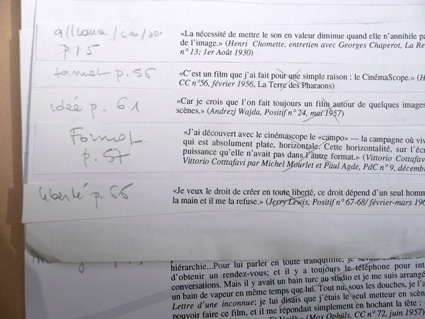 p 15
«La nécessité de mettre le son en valeur diminue quand elle n'annihile pa
de l'image.» (Henri Chomette, entretien avec Georges Chaperot, La Re
n°13; 1er Août 1930)
format p. 56
«C'est un film que j'ai fait pour une simple raison : le CinémaScope.» (H
CC n°56, février 1956, La Terre des Pharaons)
idée p. 61
«Car je crois que l'on fait toujours un film autour de quelques images
scènes.» (Andrezj Wajda, Positif n°24, mai 1957)
Format
p. 57
«J'ai découvert avec le cinémascope le «campo» — la campagne où viv
qui est absolument plate, horizontale. Cette horizontalité, sur l'écr
puissance qu'elle n'avait pas dans l'autre format.» (Vittorio Cottafav
Vittorio Cottafavi par Michel Mourlet et Paul Agde, PdC n°9, décemb
liberté p. 66
«Je veux le droit de créer en toute liberté, ce droit dépend d'un seul homm
la main et il me la refuse.» (Jerry Lewis, Positif n°67-68/ février-mars 196
hiérarchie...Pour lui parler en toute tranquillité, je
d'obtenir un rendez-vous; et il y a toujours le téléphone pour int
conversations. Mais il y avait un bain turc au studio et je me suis arrangé
un bain de vapeur en même temps que lui. Tout nu, sous les douches, je l'a
Lettre d'une inconnue; je lui disais que j'étais le seul metteur en scèn
pouvoir faire ce film, et il me répondait simplement en hochant la tête :
(Max Ophüls, CC n°72, juin 1957)